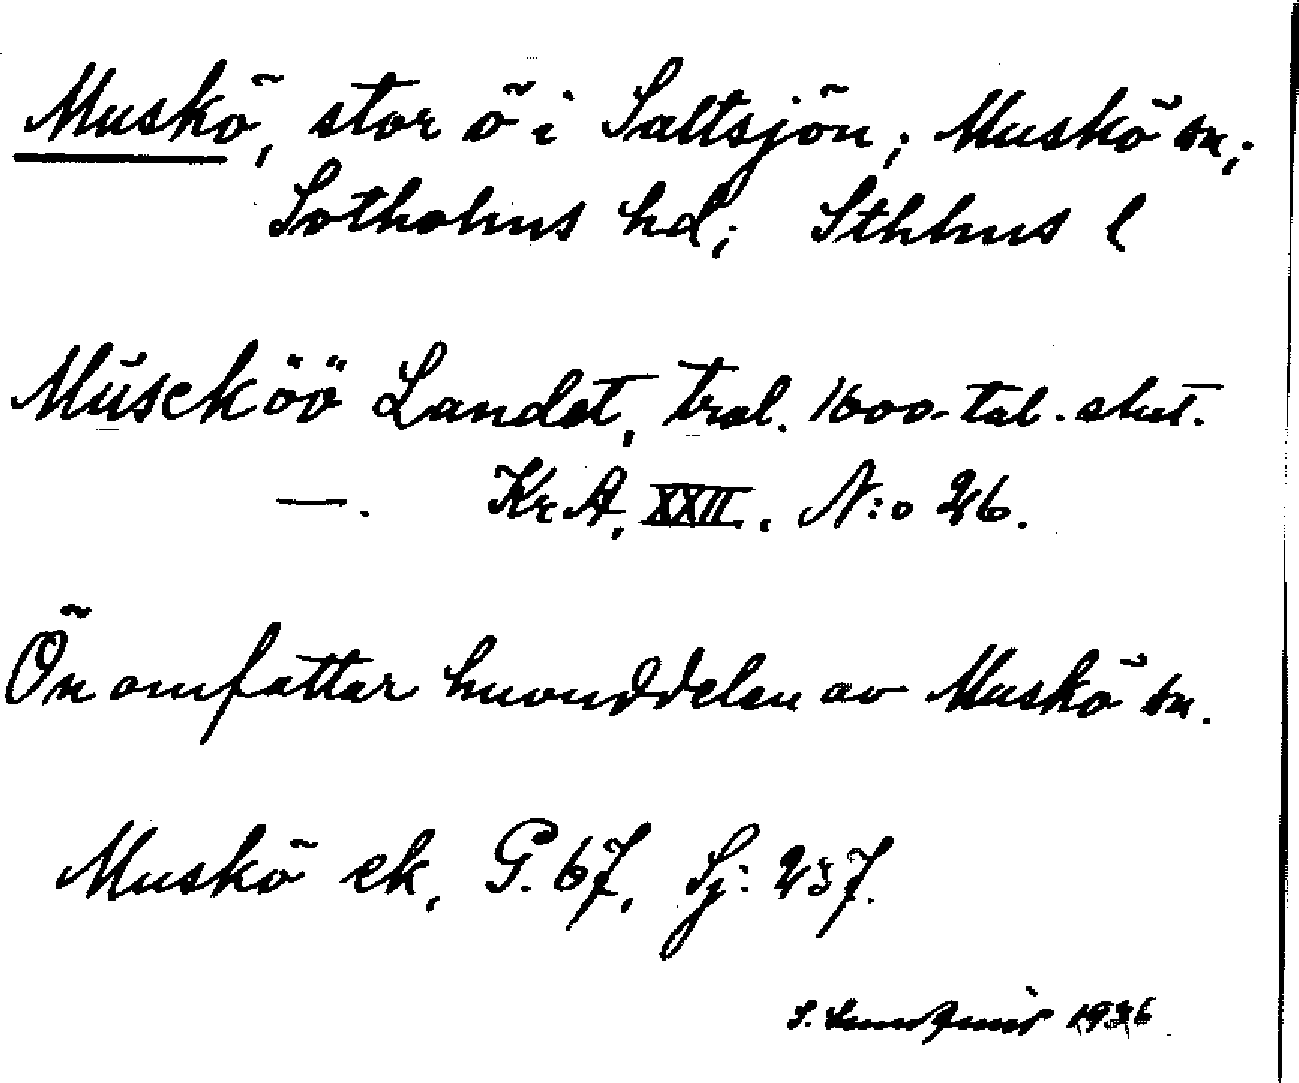 Muskö, stor ö i Saltsjön; Muskö sn;
Sotholms hd; Sthlms l
Musekӧö Landet, trol. 1600-tal. slut.
—. Kr.A, XXII. N:o 26.
Ön omfattar huvuddelen av Muskö sn.
Muskö ek, G. 67, Sj: 237.
S. 1936